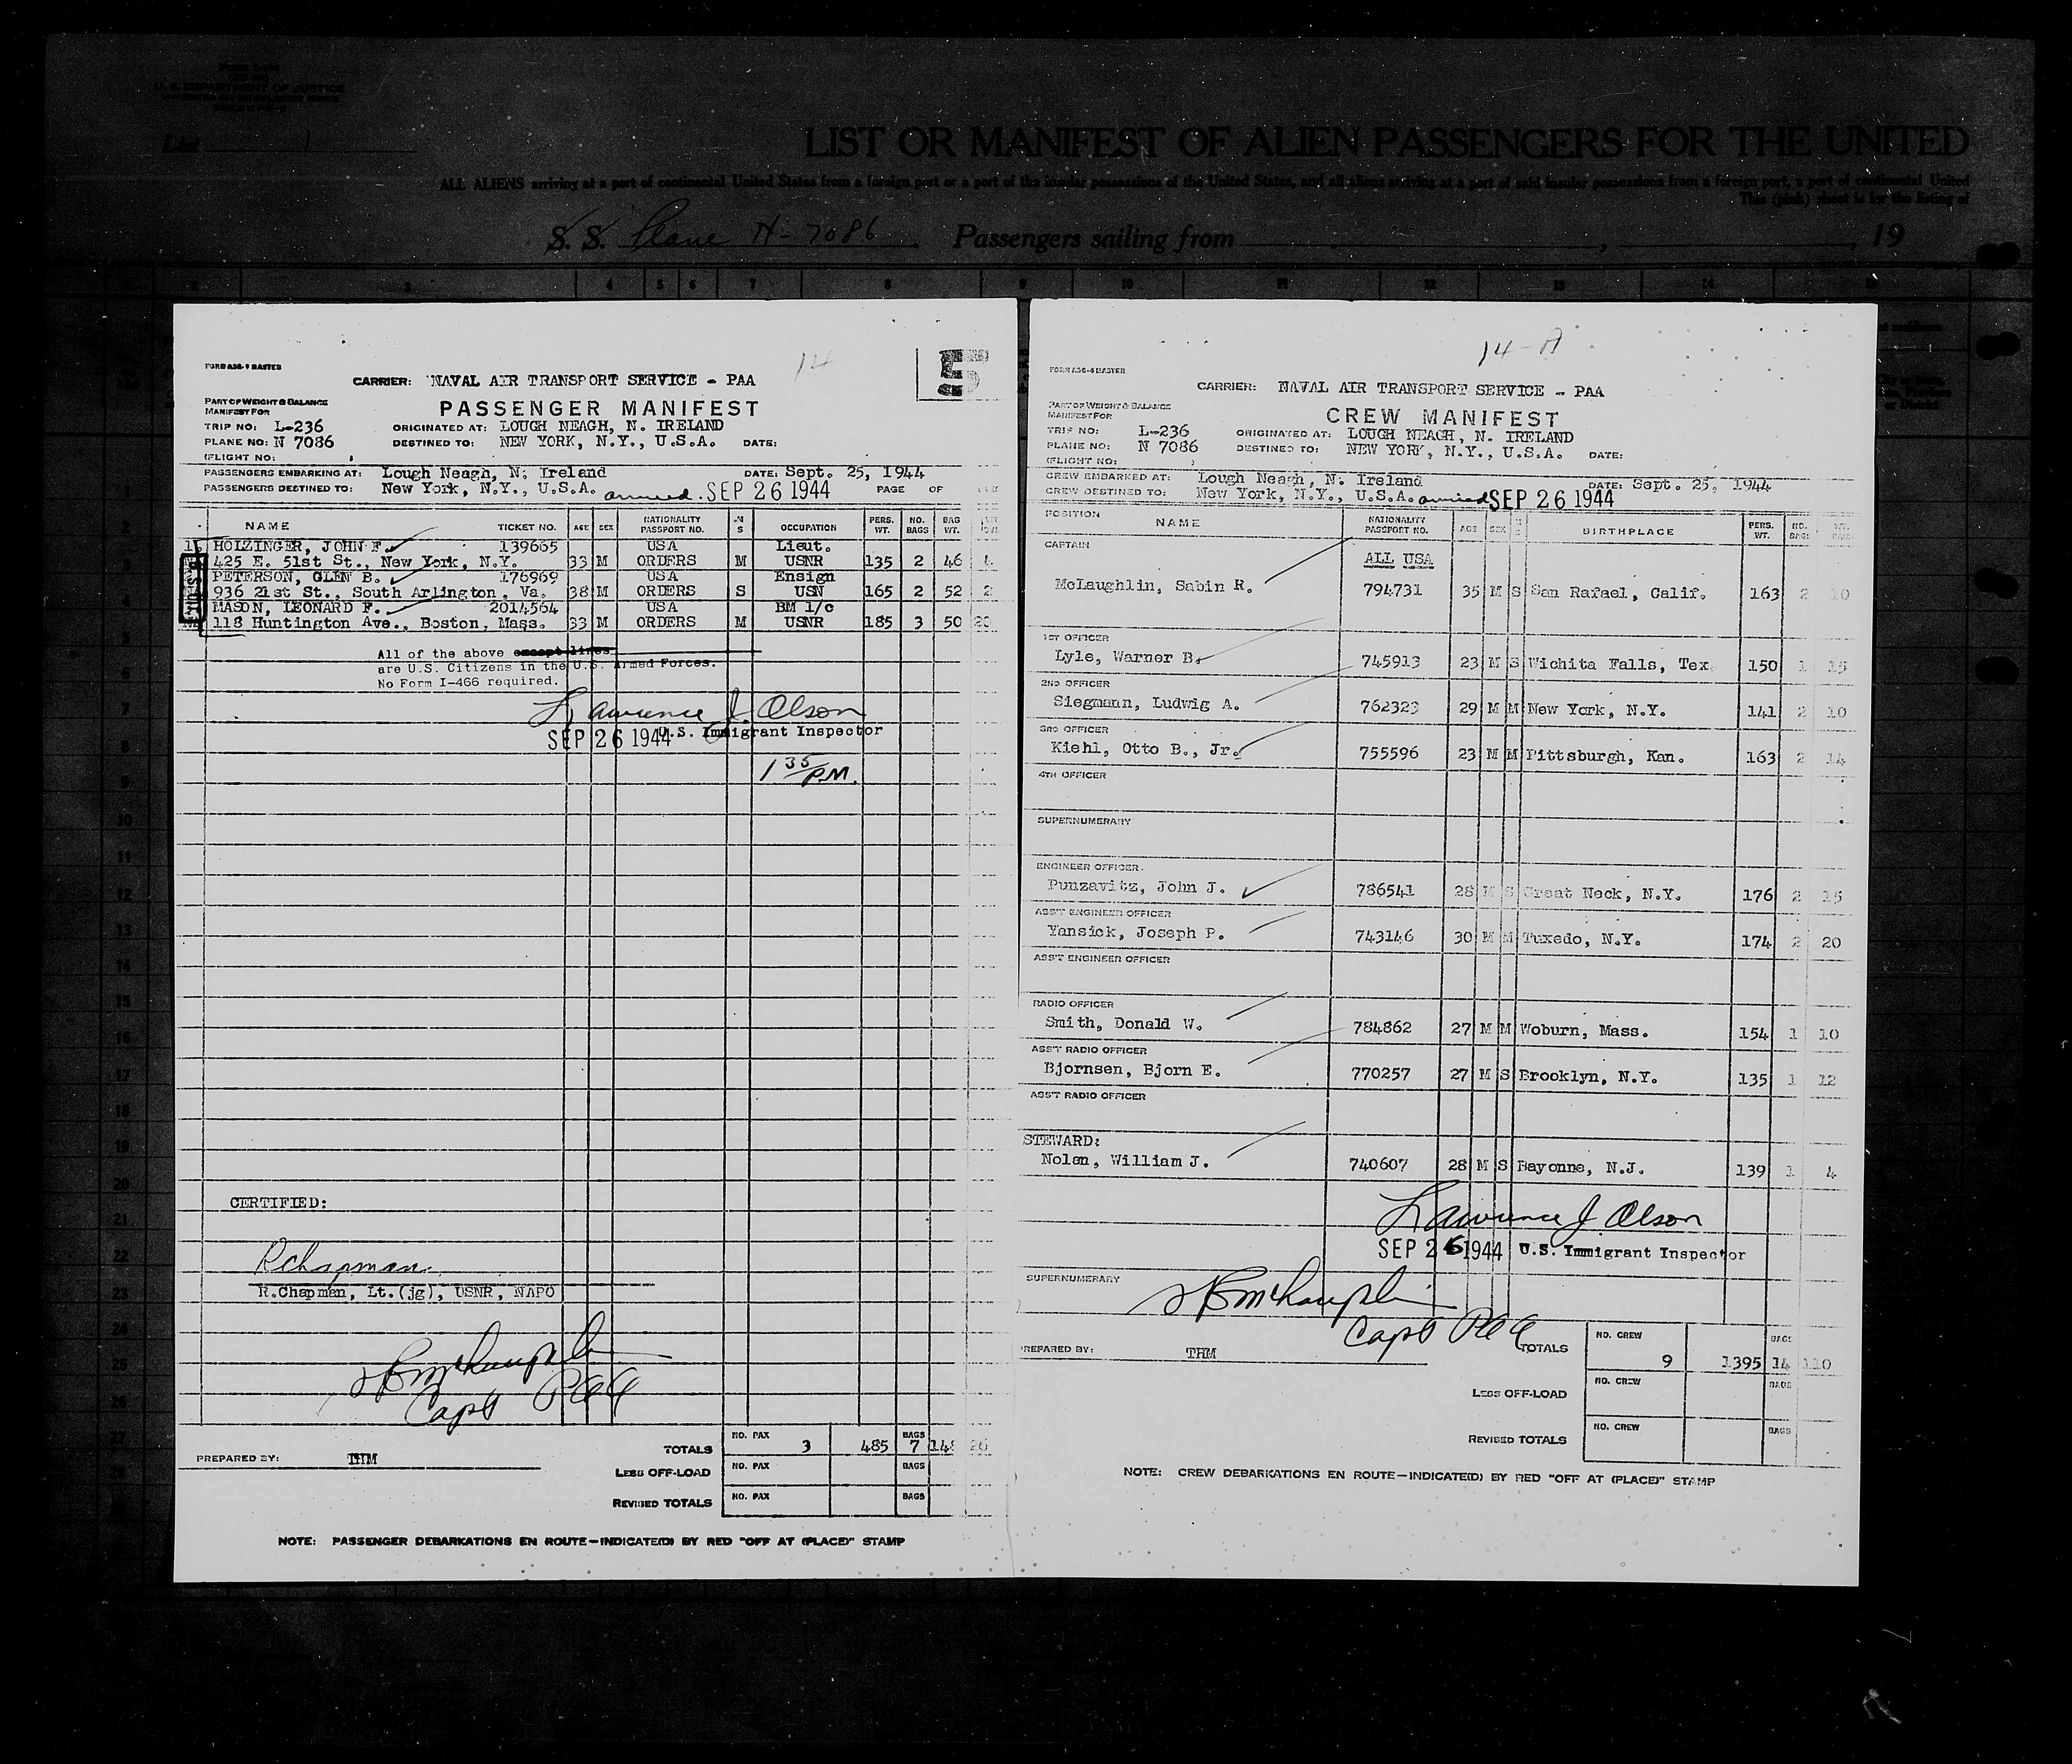 U. S. DEPARTMENT OF JUSTICE
List 1
LIST OR MANIFEST OF ALIEN PASSENGERS FOR THE UNITED
ALL ALIENS arriving at a port of continental United States from a foreign port or a port of the insular possessions of the United States, and all aliens arriving at a port of said insular possessions from a foreign port, a port of continental United
This (pink) sheet is for the listing of
S. S. Plane N-7086 Passengers sailing from , 19
14
5
FORM A36-9 MASTER
CARRIER: NAVAL AIR TRANSPORT SERVICE - PAA
PART OF WEIGHT & BALANCE
MANIFEST FOR
PASSENGER MANIFEST
TRIP NO: L-236 ORIGINATED AT: LOUGH NEAGH, N. IRELAND
PLANE NO: N 7086 DESTINED TO: NEW YORK, N.Y., U.S.A. DATE:
(FLIGHT NO: )
PASSENGERS EMBARKING AT: Lough Neagh, N. Ireland DATE: Sept. 25, 1944
PASSENGERS DESTINED TO: New York, N.Y., U.S.A. arrived SEP 26 1944 PAGE OF
NAME TICKET NO. AGE SEX NATIONALITY PASSPORT NO. M S OCCUPATION PERS. WT. NO. BAGS BAG WT.
HOLZINGER, JOHN F. 139665 USA Lieut.
425 E. 51st St., New York, N.Y. 33 M ORDERS M USNR 135 2 46
PETERSON, GLEN B. 176969 USA Ensign
936 21st St., South Arlington, Va. 38 M ORDERS S USN 165 2 52
MASON, LEONARD F. 2014564 USA BM 1/c
118 Huntington Ave., Boston, Mass. 33 M ORDERS M USNR 185 3 50
All of the above except lines
are U.S. Citizens in the U.S. Armed Forces.
No Form I-466 required.
Lawrence J. Olson
SEP 26 1944 U.S. Immigrant Inspector
1 35 P.M.
CERTIFIED:
R Chapman
R.Chapman, Lt.(jg), USNR, NAPO
SR McLaughlin
Capt PAA
PREPARED BY: THM
TOTALS NO. PAX 3 485 BAGS 7 148
LESS OFF-LOAD NO. PAX BAGS
REVISED TOTALS NO. PAX BAGS
NOTE: PASSENGER DEBARKATIONS EN ROUTE—INDICATE(D) BY RED "OFF AT (PLACE)" STAMP
14-A
FORM A36-4 MASTER
CARRIER: NAVAL AIR TRANSPORT SERVICE - PAA
PART OF WEIGHT & BALANCE
MANIFEST FOR
CREW MANIFEST
TRIP NO: L-236 ORIGINATED AT: LOUGH NEAGH, N. IRELAND
PLANE NO: N 7086 DESTINED TO: NEW YORK, N.Y., U.S.A. DATE:
(FLIGHT NO: )
CREW EMBARKED AT: Lough Neagh, N. Ireland DATE: Sept. 25, 1944
CREW DESTINED TO: New York, N.Y., U.S.A. arrived SEP 26 1944
POSITION NAME NATIONALITY PASSPORT NO. AGE SEX M S BIRTHPLACE PERS. WT. NO. BAGS WT. BAGS
CAPTAIN ALL USA
McLaughlin, Sabin R. 794731 35 M S San Rafael, Calif. 163 2 10
1ST OFFICER
Lyle, Warner B. 745913 23 M S Wichita Falls, Tex. 150 1 15
2ND OFFICER
Siegmann, Ludwig A. 762323 29 M M New York, N.Y. 141 2 10
3RD OFFICER
Kiehl, Otto B., Jr. 755596 23 M M Pittsburgh, Kan. 163 2 14
4TH OFFICER
SUPERNUMERARY
ENGINEER OFFICER
Punzavitz, John J. 786541 28 M S Great Neck, N.Y. 176 2 15
ASS'T ENGINEER OFFICER
Yansick, Joseph P. 743146 30 M M Tuxedo, N.Y. 174 2 20
ASS'T ENGINEER OFFICER
RADIO OFFICER
Smith, Donald W. 784862 27 M M Woburn, Mass. 154 1 10
ASS'T RADIO OFFICER
Bjornsen, Bjorn E. 770257 27 M S Brooklyn, N.Y. 135 1 12
ASS'T RADIO OFFICER
STEWARD:
Nolan, William J. 740607 28 M S Bayonne, N.J. 139 1 4
Lawrence J Olson
SEP 26 1944 U.S. Immigrant Inspector
SUPERNUMERARY
SR McLaughlin
Capt PAA
PREPARED BY: THM
TOTALS NO. CREW 9 1395 BAGS 14 110
LESS OFF-LOAD NO. CREW BAGS
REVISED TOTALS NO. CREW BAGS
NOTE: CREW DEBARKATIONS EN ROUTE—INDICATE(D) BY RED "OFF AT (PLACE)" STAMP